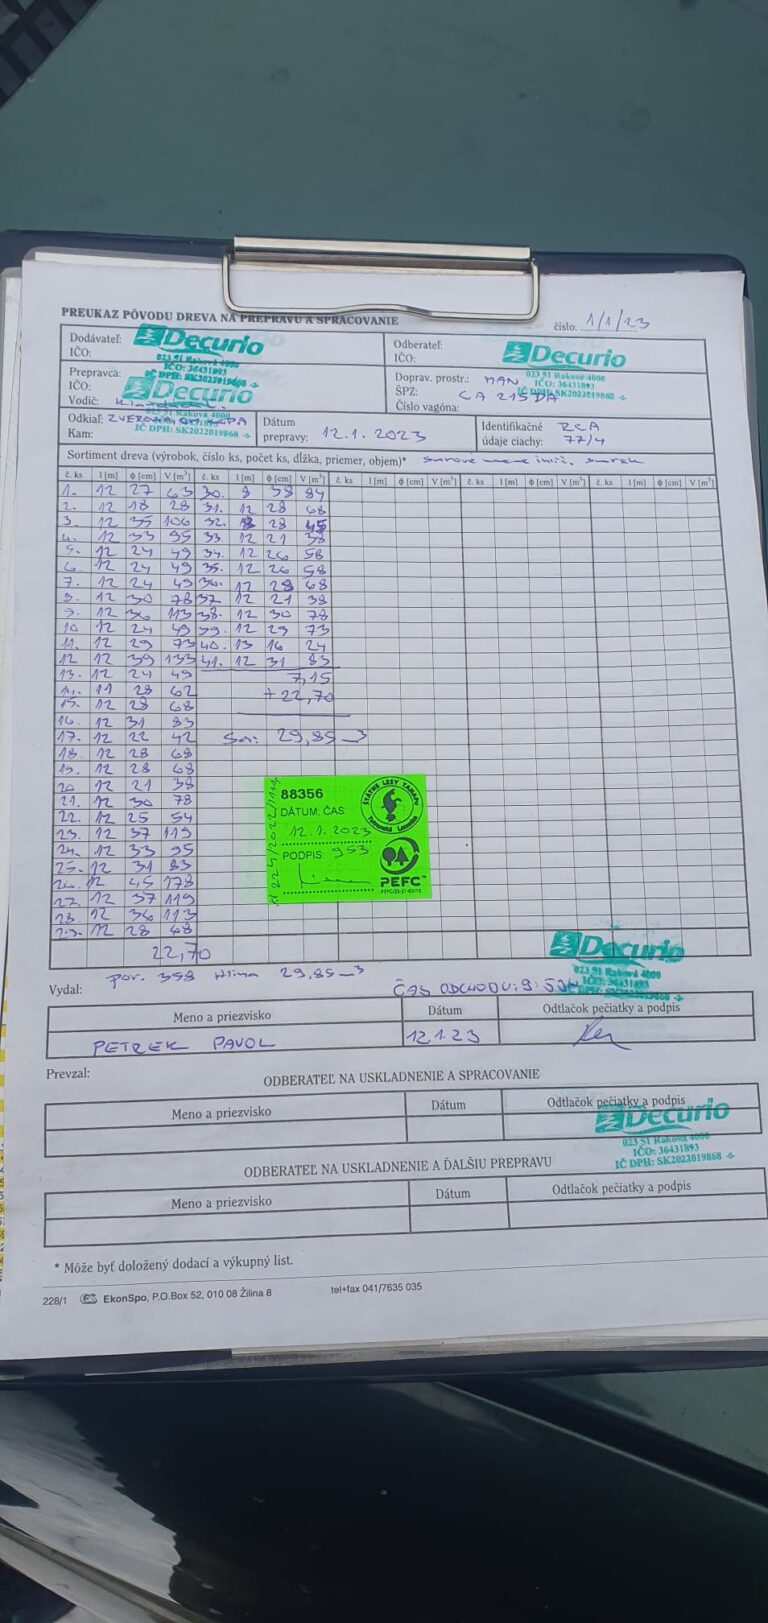 PREUKAZ PÔVODU DREVA NA PREPRAVU A SPRACOVANIE
číslo: 1/1/23
Dodávateľ: Decurio
IČO:
023 51 Raková 4000
IČO: 36431893
IČ DPH: SK2022019868 -6-
Odberateľ:
IČO:
Decurio
023 51 Raková 4000
IČO: 36431893
IČ DPH: SK2022019868 -6-
Prepravca:
IČO:
Decurio
Vodič:
023 51 Raková 4000
IČ DPH: SK2022019868 -6-
Doprav. prostr.: MAN
ŠPZ: CA 215DA
Číslo vagóna:
Odkiaľ:
Kam:
Dátum
prepravy: 12.1.2023
Identifikačné RCA
údaje ciachy: 77/4
Sortiment dreva (výrobok, číslo ks, počet ks, dĺžka, priemer, objem)*
č. ks l [m] ϕ [cm] V [m³] č. ks l [m] ϕ [cm] V [m³] č. ks l [m] ϕ [cm] V [m³] č. ks l [m] ϕ [cm] V [m³] č. ks l [m] ϕ [cm] V [m³]
1. 12 27 63 30. 8 39 84
2. 12 18 28 31. 12 28 68
3. 12 35 106 32. 28 45
4. 12 33 95 33 12 21 38
5. 12 24 49 34. 12 26 58
6. 12 24 49 35. 12 26 58
7. 12 24 49 36. 12 28 68
8. 12 30 78 37 12 21 38
9. 12 36 113 38. 12 30 78
10 12 24 49 39. 12 29 73
11. 12 29 73 40. 13 16 24
12 12 39 133 41. 12 31 83
13. 12 24 49 7,15
14. 11 28 62 + 22,70
15. 12 28 68
16. 12 31 83
17. 12 22 42 Sa: 29,85 m3
18. 12 28 68
19. 12 28 68
20 12 21 38
21. 12 30 78
22. 12 25 54
23. 12 37 119
24. 12 33 95
25. 12 31 83
26. 12 45 178
27. 12 37 119
28. 12 36 113
29. 12 28 68
22,70
88356
DÁTUM, ČAS:
12.1.2023
PODPIS: 953
ŠTÁTNE LESY TANAPU
Tatranská Lomnica
PEFC™
por. 358 Hlina 29,85 m3
Vydal:
ČAS ODCHODU:
Decurio
023 51 Raková 4000
IČO: 36431893
Meno a priezvisko Dátum Odtlačok pečiatky a podpis
PETREK PAVOL 12.1.23
Prevzal:
ODBERATEĽ NA USKLADNENIE A SPRACOVANIE
Meno a priezvisko Dátum Odtlačok pečiatky a podpis
Decurio
023 51 Raková 4000
IČO: 36431893
IČ DPH: SK2022019868 -6-
ODBERATEĽ NA USKLADNENIE A ĎALŠIU PREPRAVU
Meno a priezvisko Dátum Odtlačok pečiatky a podpis
* Môže byť doložený dodací a výkupný list.
228/1 ES EkonSpo, P.O.Box 52, 010 08 Žilina 8 tel+fax 041/7635 035